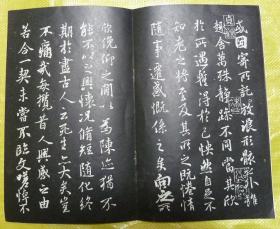 或因寄所託放浪形骸之外雖
趣舍萬殊靜躁不同當其欣
於所遇蹔得於己怏然自足不
知老之將至及其所之既惓情
隨事遷感慨係之矣向之所
欣俛仰之閒以為陳迹猶不
能不以之興懷況脩短隨化終
期於盡古人云死生亦大矣豈
不痛哉每攬昔人興感之由
若合一契未嘗不臨文嗟悼不